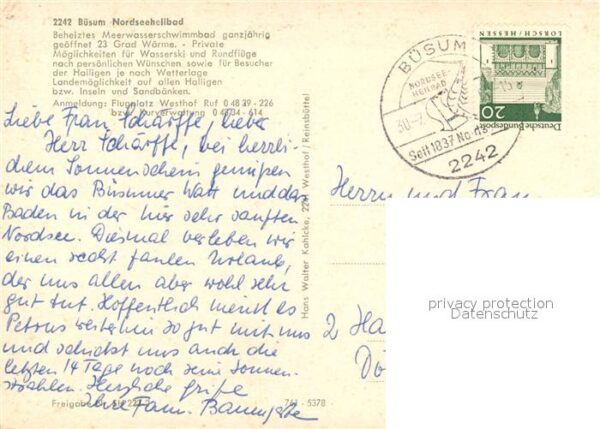 2242 Büsum Nordseeheilbad
Beheiztes Meerwasserschwimmbad ganzjährig
geöffnet 23 Grad Wärme. - Private
Möglichkeiten für Wasserski und Rundflüge
nach persönlichen Wünschen sowie für Besucher
der Halligen je nach Wetterlage
Landemöglichkeit auf allen Halligen
bzw. Inseln und Sandbänken.
Anmeldung: Flugplatz Westhof Ruf 0 48 39 - 226
bzw. Kurverwaltung 0 48 34 - 614
Liebe Frau Scharffe, lieber
Herr Scharffe, bei herrli-
chem Sonnenschein genießen
wir das Büsumer Watt und das
Baden in der hier sehr sanften
Nordsee. Diesmal verleben wir
einen recht faulen Urlaub,
der uns allen aber wohl sehr
gut tut. Hoffentlich meint es
Petrus weiterhin so gut mit uns
und schickt uns auch die
letzten 14 Tage noch seine Sonnen-
strahlen. Herzliche Grüße
Ihre Fam. Baumgarte
Freigabe Nr. SH 227
761 - 5378
Hans Walter Kahlcke, 2241 Westhof / Reinsbüttel
BÜSUM
NORDSEE-
HEILBAD
30.-7.
Seit 1837
2242
LORSCH / HESSEN
Deutsche Bundespost
20
Herrn und Frau
2 Ha
privacy protection
Datenschutz